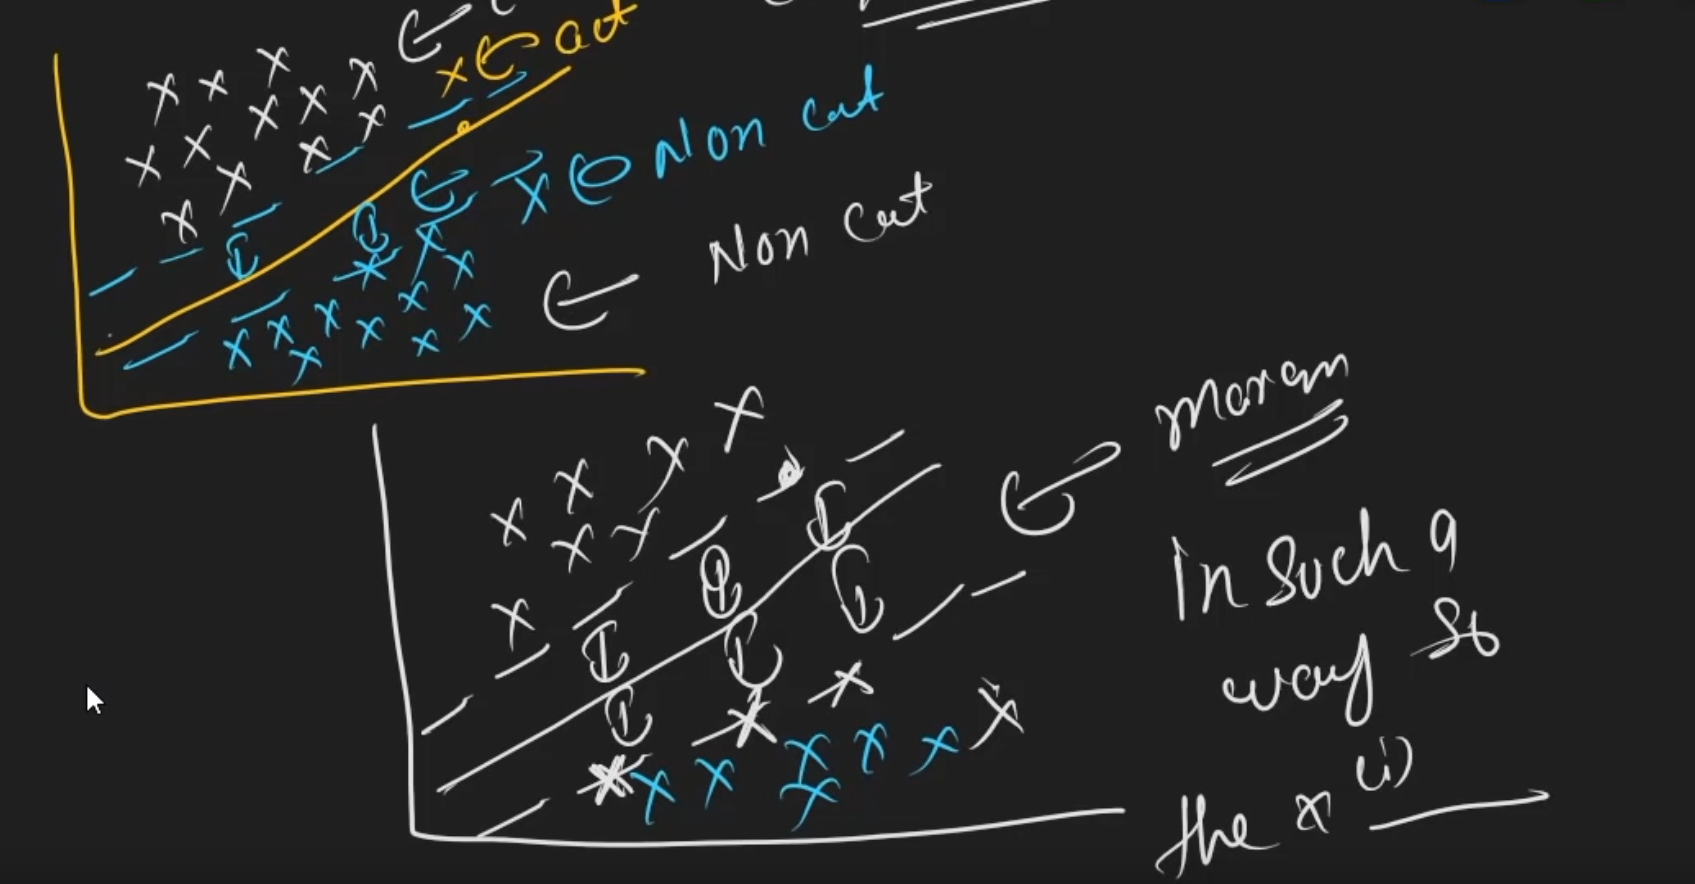 cut
Non cut
Non cut
Margin
in such a
way so
the x(i)